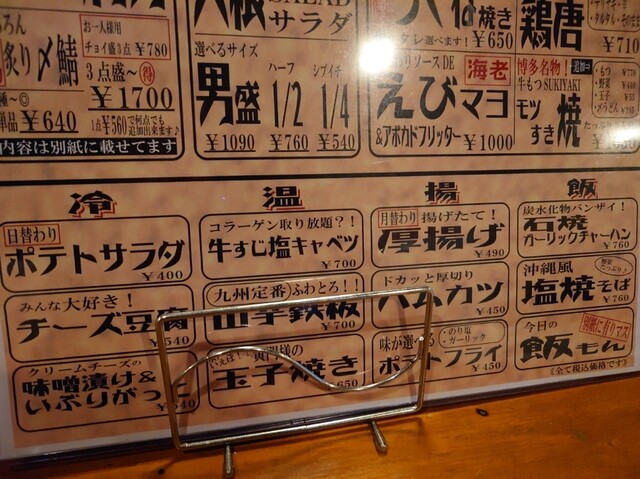 SALAD
サラダ
焼き
タレ選べます!
¥650
鶏唐
¥710
お一人様用
チョイ盛3点 ¥780
炙り〆鯖
3点盛~ 得
¥1700
単品 ¥640
1点¥560で何点でも
追加出来ます♪
内容は別紙に載せてます
選べるサイズ
男盛
ハーフ
1/2
シブイチ
1/4
¥1090
¥760
¥540
ソースDE
海老
えびマヨ
&アボカドフリッター
¥1000
博多名物!
追加
牛もつSUKIYAKI
モツすき焼
・もつ
・野菜
冷
日替わり
ポテトサラダ
¥400
みんな大好き!
チーズ豆腐
¥540
クリームチーズの
味噌漬け&
いぶりがっこ
温
コラーゲン取り放題?!
牛すじ塩キャベツ
¥700
九州定番!ふわとろ!
山芋鉄板
¥700
玉子焼き
¥650
揚
月替わり 揚げたて!
厚揚げ
¥490
ドカッと厚切り
ハムカツ
¥450
味が選べる
・のり塩
・ガーリック
ポテトフライ
¥450
飯
炭水化物バンザイ!
石焼
ガーリックチャーハン
¥760
沖縄風
野菜たっぷり♪
塩焼そば
¥760
今日の
別紙に有りマス
飯もん
《全て税込価格です》